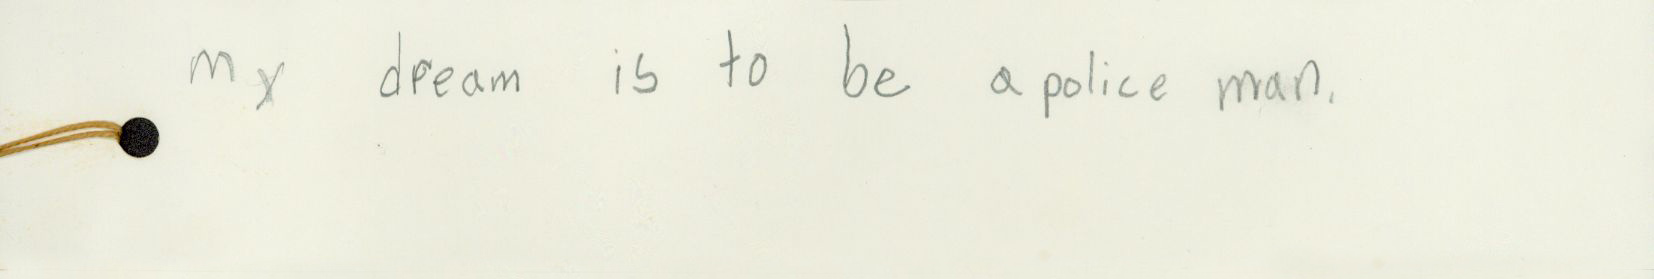 My dream is to be a police man.